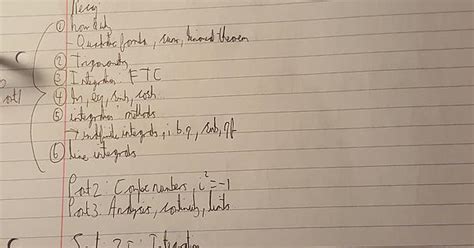 Recap:
① how duty
- Quadratic formula, sum, binomial theorem
② Trigonometry
③ Integration: FTC
④ ln, eg, sinh, cosh
⑤ integration methods
→ indefinite integrals, i.b.p, sub,
⑥ line integrals
Part 1
Part 2: Complex numbers, i² = -1
Part 3: Analysis, continuity, limits
Integration